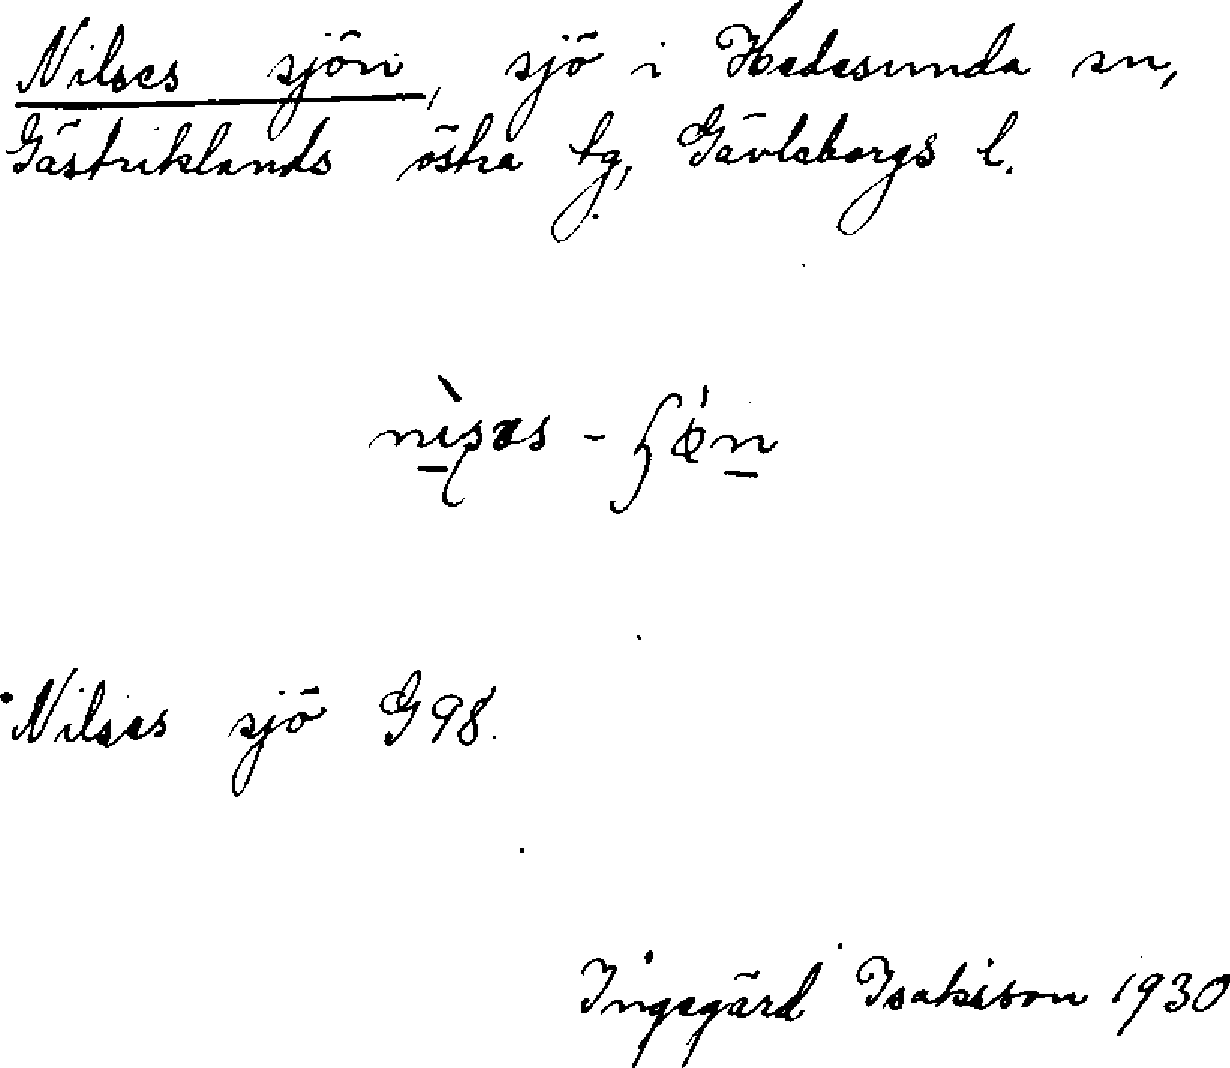 Nilses sjön, sjö i Hedesunda sn,
Gästriklands östra tg, Gävleborgs l.
Nilses sjö G98.
Ingegärd Isaksson 1930